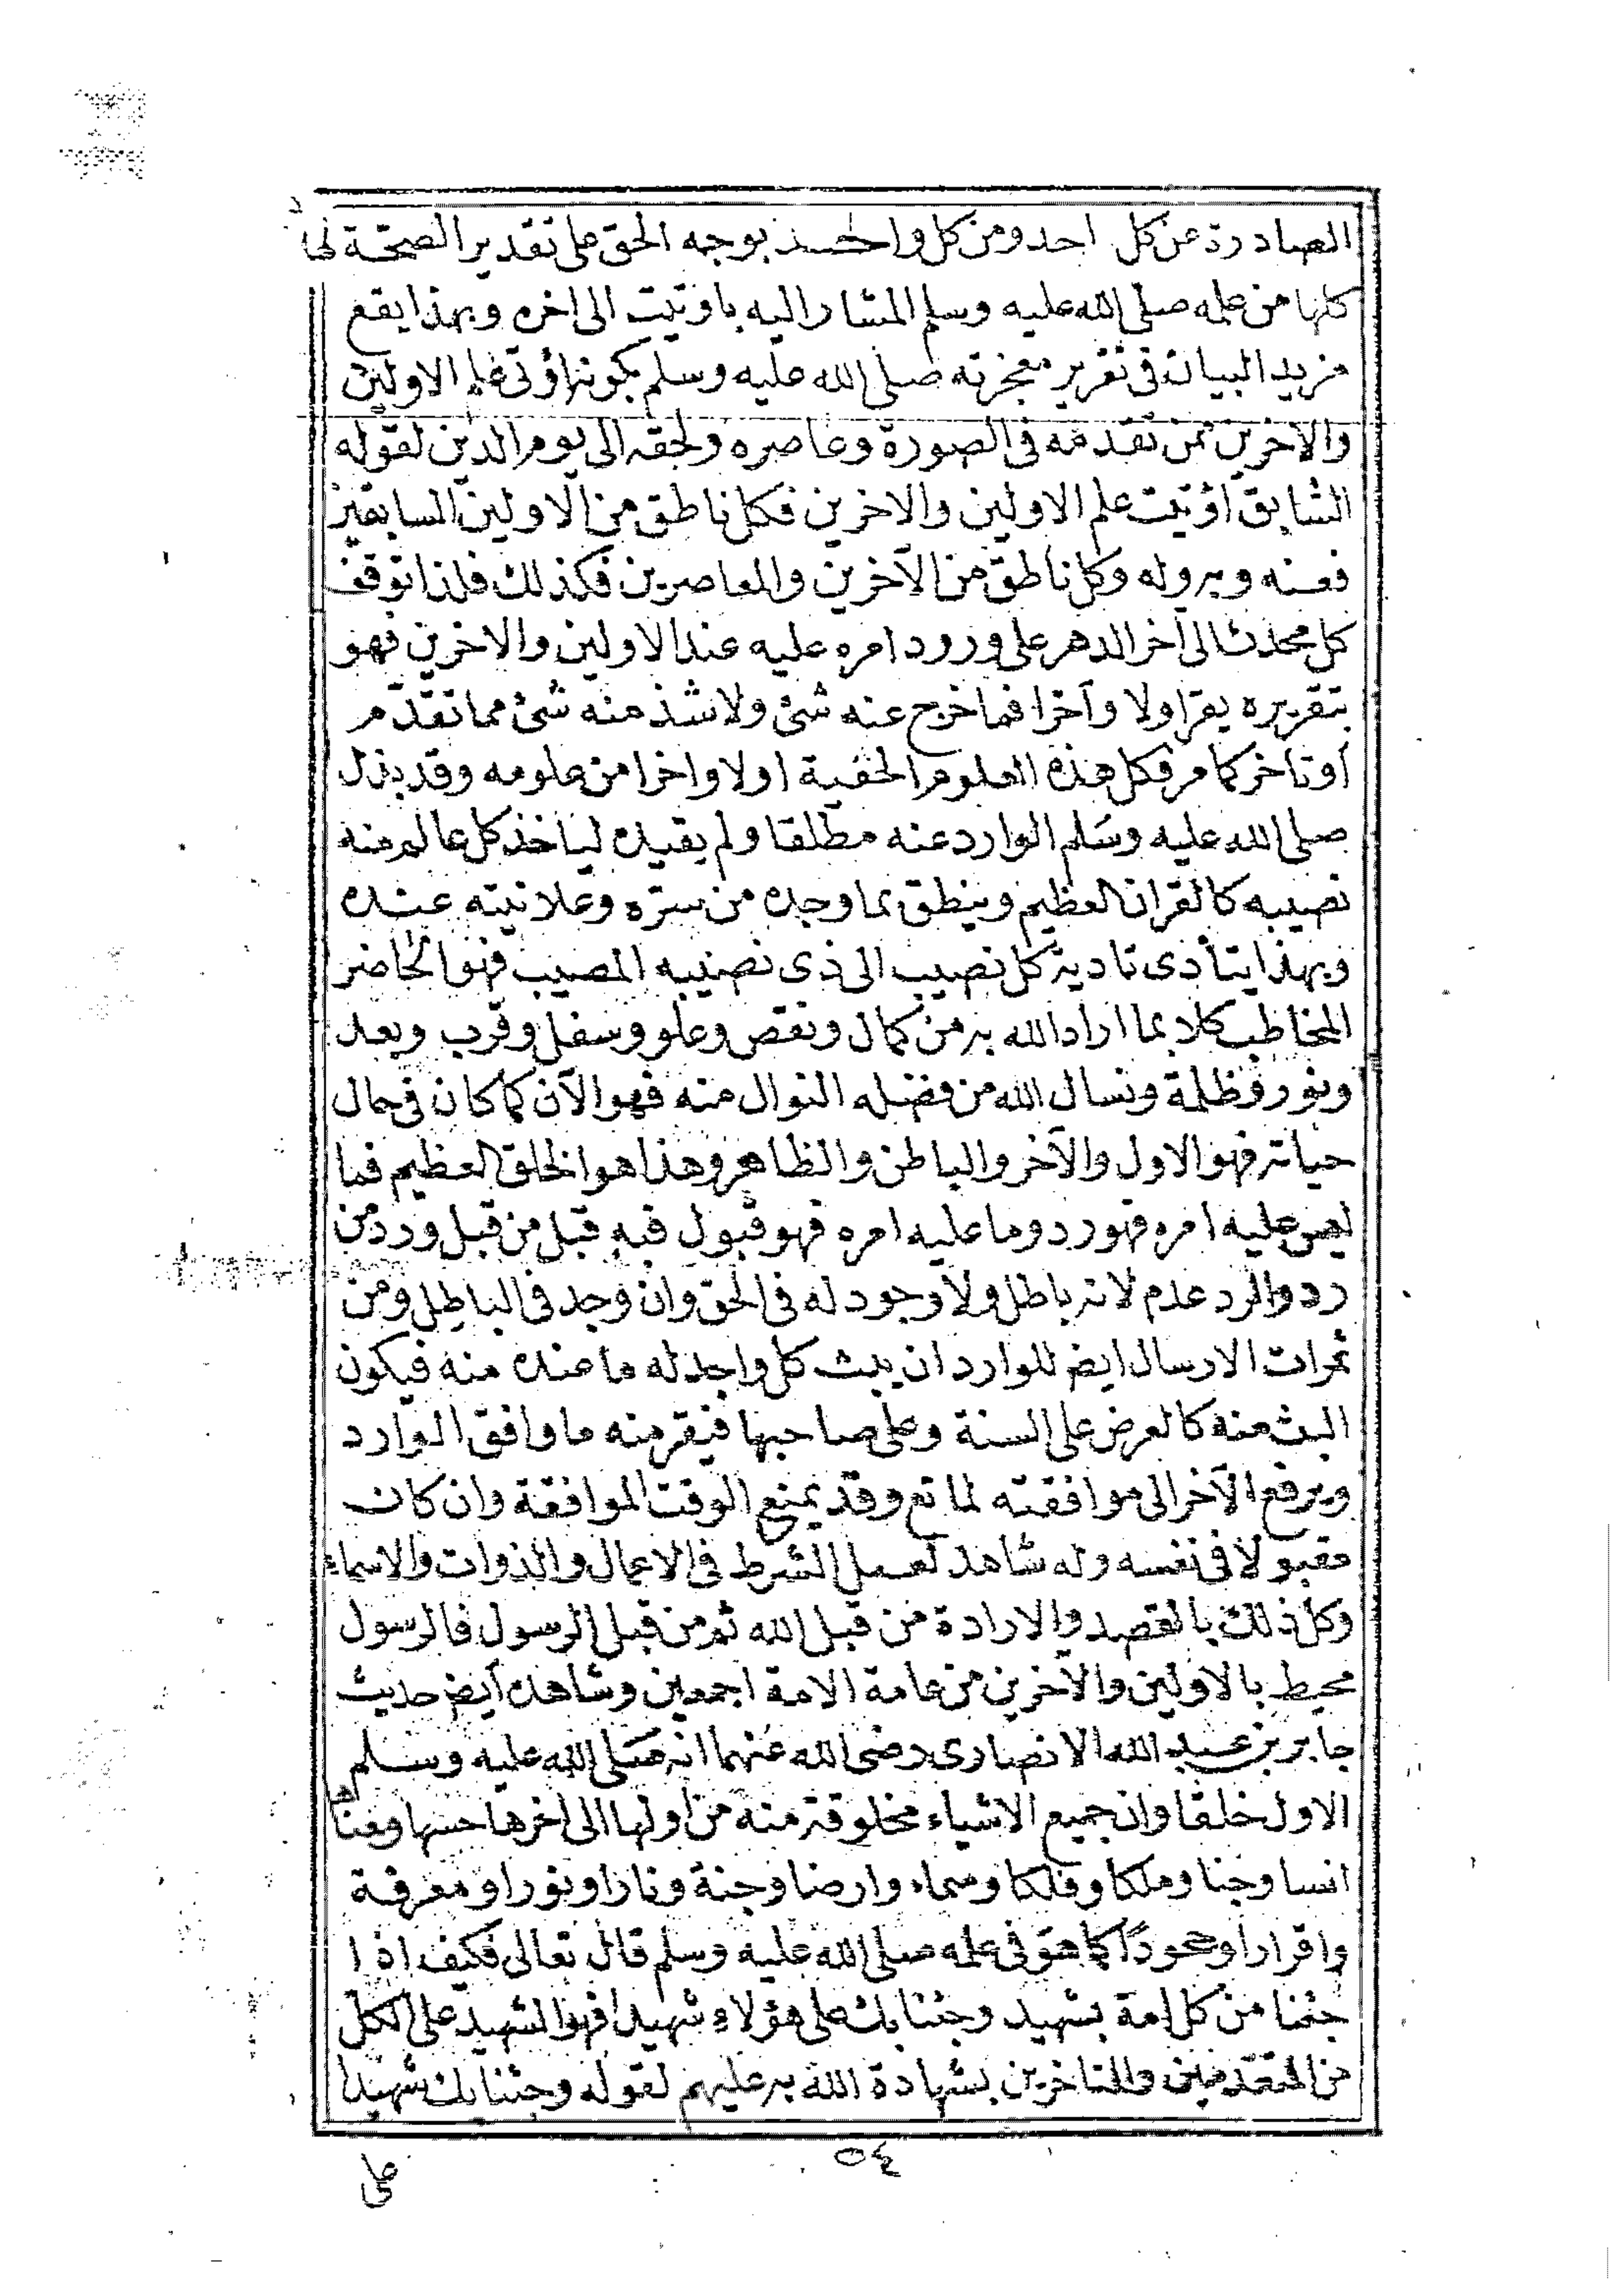 الصادرة عن كل احد ومن كل واحد بوجه الحق على تقدير الصحة لها
كلها من علمه صلى الله عليه وسلم المشار اليه باوتيت الى اخره وبهذا يقع
مزيد البيان فى تقرير معجزته صلى الله عليه وسلم بكونه اوتى علم الاولين
والآخرين ممن تقدمه فى الصورة وعاصره ولحقه الى يوم الدين لقوله
السابق اوتيت علم الاولين والاخرين فكل ناطق من الاولين السابقين
فعنه وبه وله وكل ناطق من الآخرين والمعاصرين فكذلك فلذا توقف
كل محدث الى آخر الدهر على ورود امره عليه عند الاولين والاخرين فهو
بتقريره يقر اولا وآخرا فما خرج عنه شئ ولا شذ منه شئ مما تقدم
او تاخر كما مر فكل هذه العلوم الحقية اولا واخرا من علومه وقد بذل
صلى الله عليه وسلم الوارد عنه مطلقا ولم يقيده لياخذ كل عالم منه
نصيبه كالقران العظيم وينطق بما وجده من سره وعلانيته عنده
وبهذا يتأدى تادية كل نصيب الى ذى نصيبه المصيب فهو الحاضر
المخاطب كلا بما اراد الله به من كمال ونقص وعلو وسفل وقرب وبعد
ونور وظلمة ونسال الله من فضله النوال منه فهو الآن كما كان فى حال
حياته فهو الاول والآخر والباطن والظاهر وهذا هو الخلق العظيم فما
ليس عليه امره فهو رد وما عليه امره فهو قبول فبه قبل من قبل ورد من
رد والرد عدم لانه باطل ولا وجود له فى الحق وان وجد فى الباطل ومن
ثمرات الارسال ايض للوارد ان يبث كل واجد له ما عنده منه فيكون
البث منه كالعرض على السنة وعلى صاحبها فيقر منه ما وافق الوارد
ويرفع الآخر الى موافقته لمانع وقد يمنع الوقت الموافقة وان كان
مقبولا فى نفسه وله شاهد لعمل الشرط فى الاعمال والذوات والاسماء
وكل ذلك بالقصد والارادة من قبل الله ثم من قبل الرسول فالرسول
محيط بالاولين والآخرين من عامة الامة اجمعين وشاهده ايض حديث
جابر بن عبد الله الانصارى رضى الله عنهما انه صلى الله عليه وسلم
الاول خلقا وان جميع الاشياء مخلوقة منه من اولها الى اخرها حسها ومعناها
انسا وجنا وملكا وفلكا وسماء وارضا وجنة ونارا ونورا ومعرفة
واقرارا وجحودًا كما هو فى علمه صلى الله عليه وسلم قال تعالى فكيف اذا
جئنا من كل امة بشهيد وجئنا بك على هؤلاء شهيدا فهو الشهيد على الكل
من المتقدمين والمتاخرين بشهادة الله به عليهم لقوله وجئنا بك شهيدا
٥٤
على